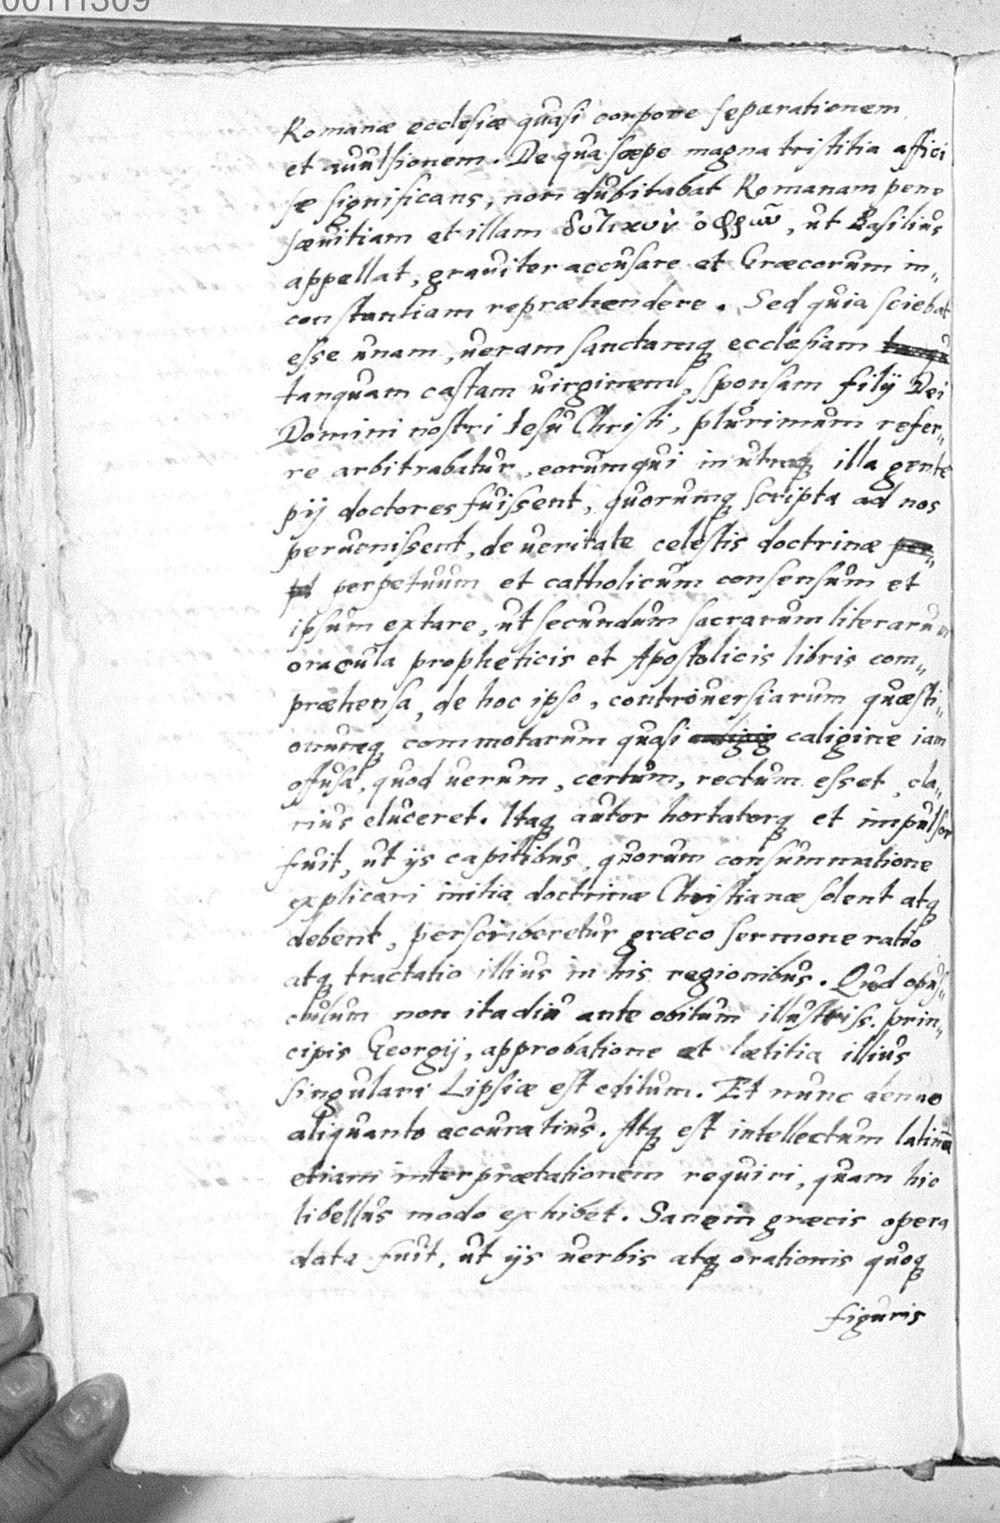 00111309
Romanæ ecclesiæ quasi corpore separationem
et auulsionem. De qua sæpe magna tristitia affici
se significans, non dubitabat Romanam pene
sæuitiam et illam δυτικὴν ὀφρῦν, ut Basilius
appellat, grauiter accusare et Græcorum in„
constantiam repræhendere. Sed quia sciebat
esse unam, ueram sanctamq ecclesiam
tanquam castam uirginem, sponsam filij Dei
Domini nostri Iesu Christi, plurimum refer„
re arbitrabatur, eorum qui in utraq illa gente
pij doctores fuissent, quorumq scripta ad nos
peruenissent, de ueritate celestis doctrinæ per„
pet perpetuum et catholicum consensum et
ipsum extare, ut secundum sacrarum literarum
oracula propheticis et Apostolicis libris com„
præhensa, de hoc ipso, controuersiarum quæsti„
onumq commotarum quasi caligine iam
offusa, quod uerum, certum, rectum esset, cla„
rius eluceret. Itaq autor hortatorq et impulsor
fuit, ut ijs capitibus, quorum consummatione
explicari initia doctrinæ Christianæ solent atq
debent, perscriberetur græco sermone ratio
atq tractatio illius in his regionibus. Quod opus„
culum non ita diu ante obitum illustriss. prin„
cipis Georgij, approbatione et lætitia illius
singulari Lipsiæ est editum. Et nunc denuo
aliquanto accuratius. Atq est intellectum latinā
etiam interprætationem requiri, quam hic
libellus modo exhibet. Sane in græcis opera
data fuit, ut ijs uerbis atq orationis quoq
figuris